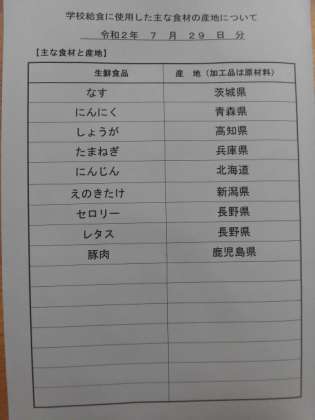 学校給食に使用した主な食材の産地について
令和2年 7 月 29 日 分
【主な食材と産地】
生鮮食品 産 地（加工品は原材料）
なす 茨城県
にんにく 青森県
しょうが 高知県
たまねぎ 兵庫県
にんじん 北海道
えのきたけ 新潟県
セロリー 長野県
レタス 長野県
豚肉 鹿児島県